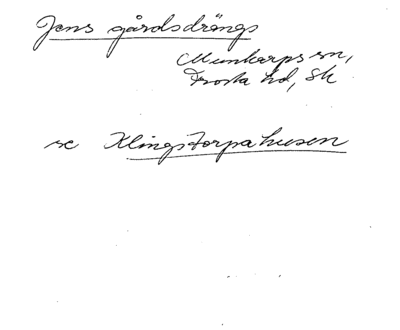 Jens gårdsdrängs
Munkarps sn,
Frosta hd, Sk
se Klingstorpahusen